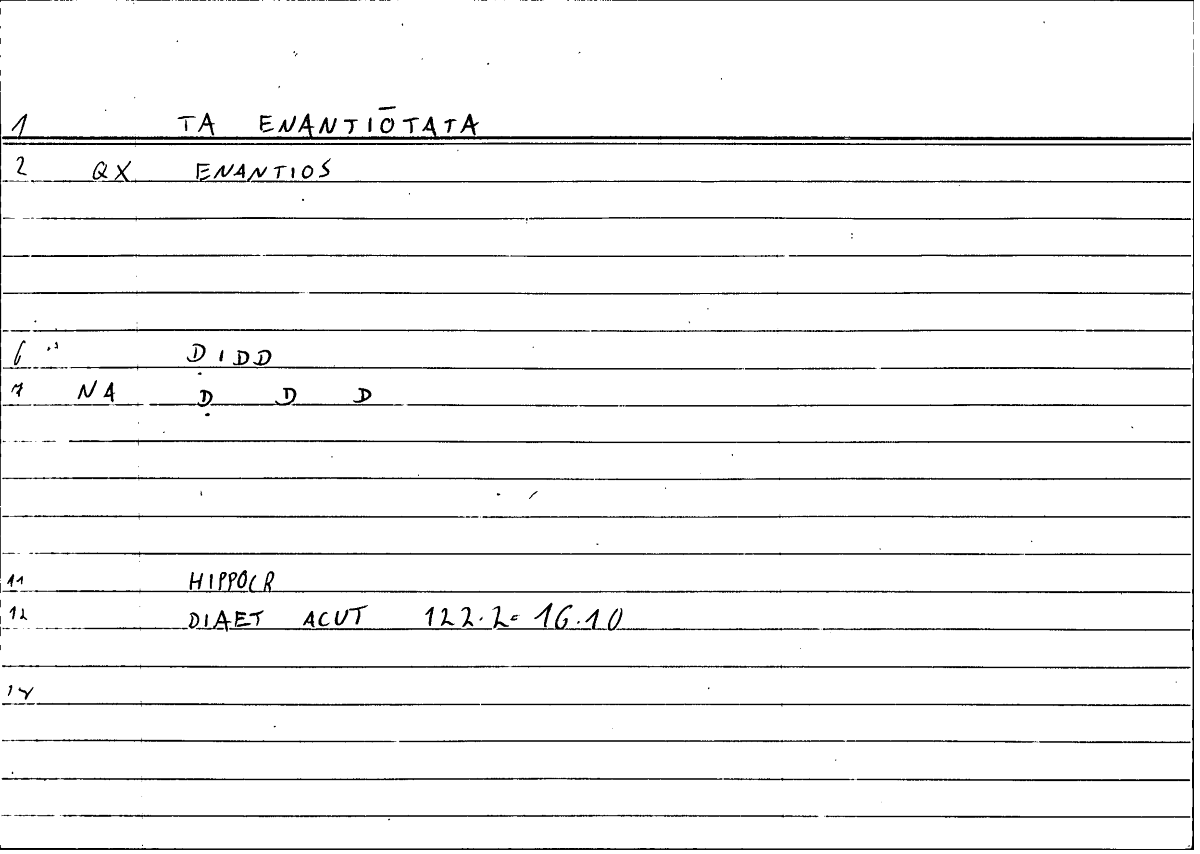 1 TA ENANTIŌTATA
2 QX ENANTIOS
6 DIDD
7 NA Ḍ D D
11 HIPPOCR
12 DIAET ACUT 122.2= 16.10